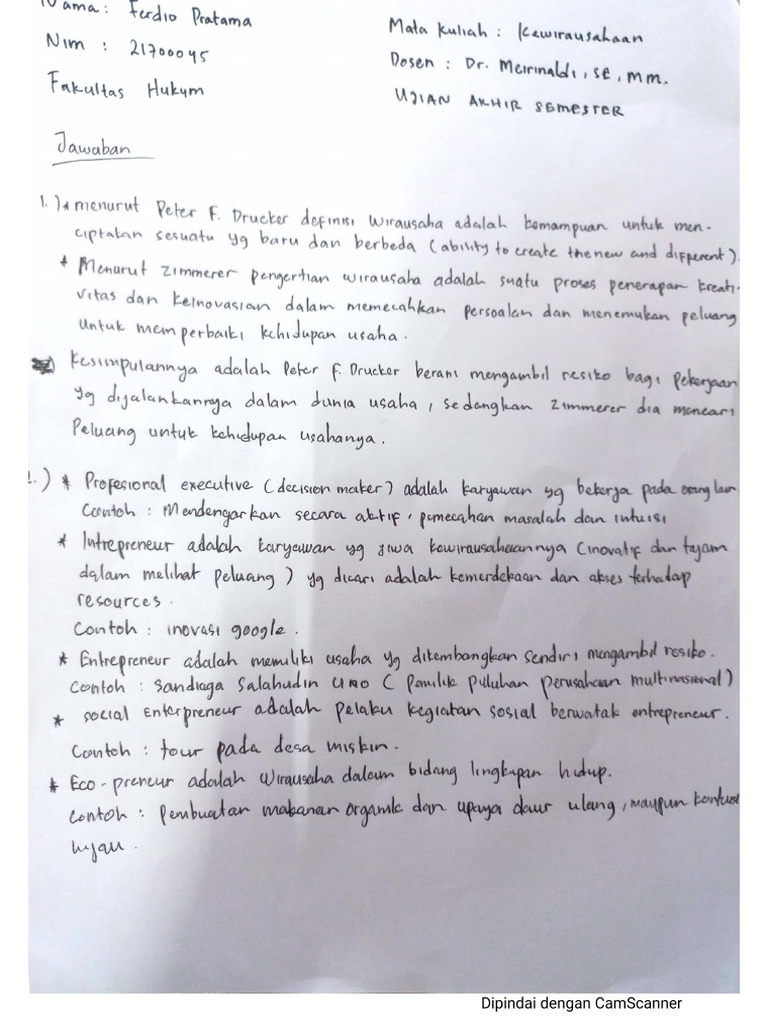 Nama : Ferdio Pratama
Nim : 21700045
Fakultas Hukum
Mata kuliah : Kewirausahaan
Dosen : Dr. Meirinaldi, SE, mm.
UJIAN AKHIR SEMESTER
Jawaban
1.) * menurut Peter F. Drucker definisi wirausaha adalah kemampuan untuk men-
ciptakan sesuatu yg baru dan berbeda (ability to create the new and different).
* Menurut Zimmerer pengertian wirausaha adalah suatu proses penerapan kreati-
vitas dan keinovasian dalam memecahkan persoalan dan menemukan peluang
Untuk memperbaiki kehidupan usaha.
Kesimpulannya adalah Peter F. Drucker berani mengambil resiko bagi Pekerjaan
yg dijalankannya dalam dunia usaha, sedangkan Zimmerer dia mencari
Peluang untuk kehidupan usahanya.
2.) * Profesional executive (decision maker) adalah karyawan yg bekerja pada orang lain
Contoh : Mendengarkan secara aktif, pemecahan masalah dan intuisi
* Intrepreneur adalah karyawan yg jiwa kewirausahaannya (inovatif dan tajam
dalam melihat peluang) yg dicari adalah kemerdekaan dan akses terhadap
resources.
Contoh : inovasi google.
* Entrepreneur adalah memiliki usaha yg dikembangkan sendiri mengambil resiko.
Contoh : Sandiaga Salahudin Uno (Pemilik puluhan perusahaan multinasional)
* social Enterpreneur adalah pelaku kegiatan sosial berwatak entrepreneur.
Contoh : tour pada desa miskin.
* Eco-preneur adalah Wirausaha dalam bidang lingkupan hidup.
Contoh : Pembuatan makanan organik dan upaya daur ulang, maupun
hijau.
Dipindai dengan CamScanner